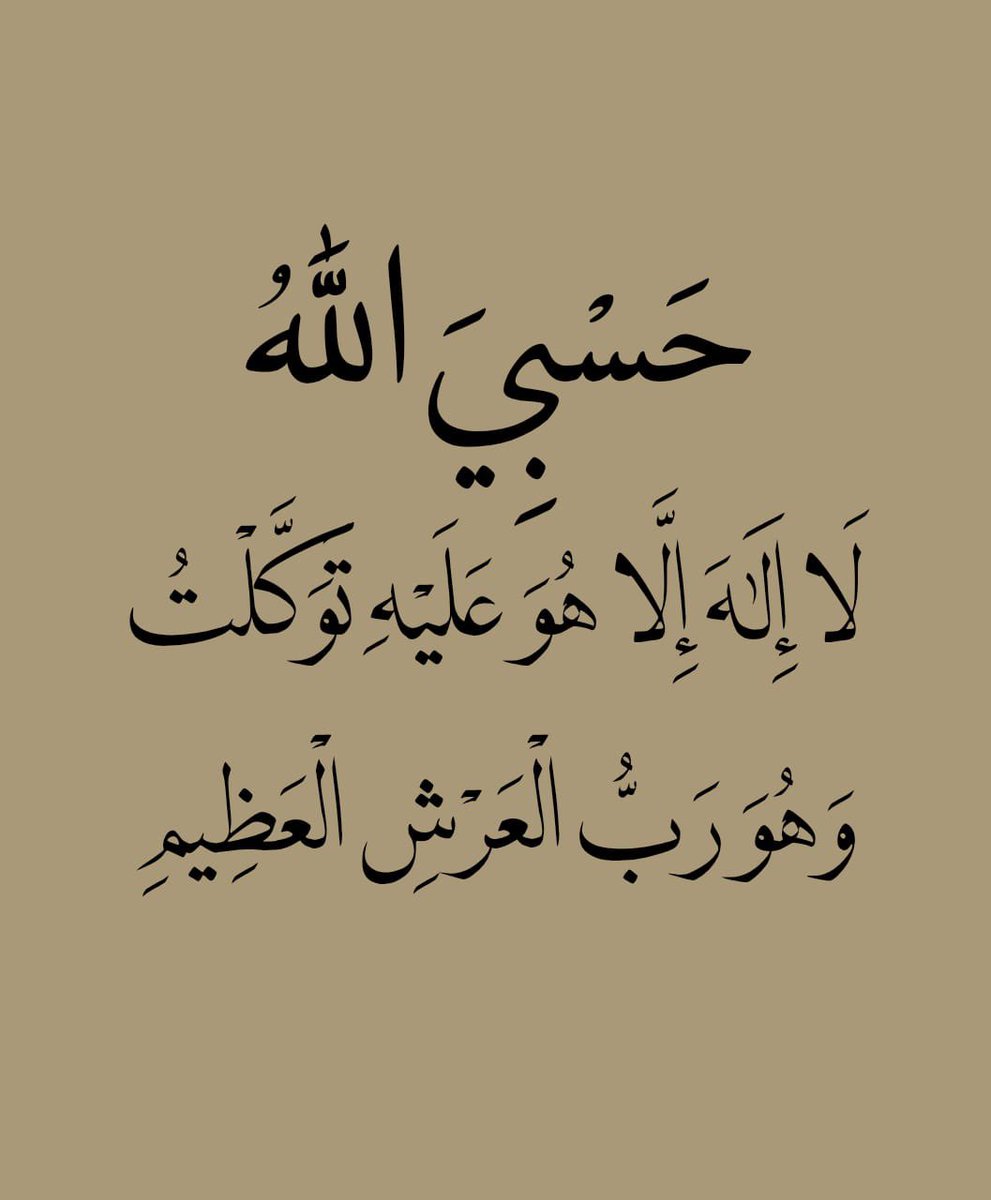 حَسْبِيَ اللَّهُ
لَا إِلَٰهَ إِلَّا هُوَ عَلَيْهِ تَوَكَّلْتُ
وَهُوَ رَبُّ الْعَرْشِ الْعَظِيمِ